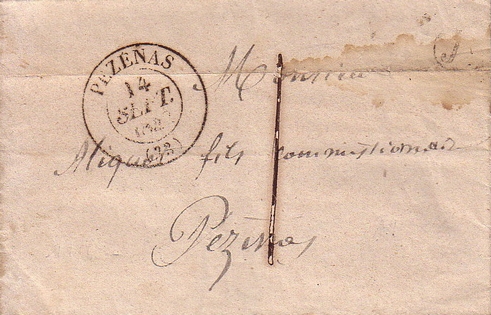 PEZENAS
14
SEPT.
(33)
Monsieur
fils commissionnaire
Pézenas
1